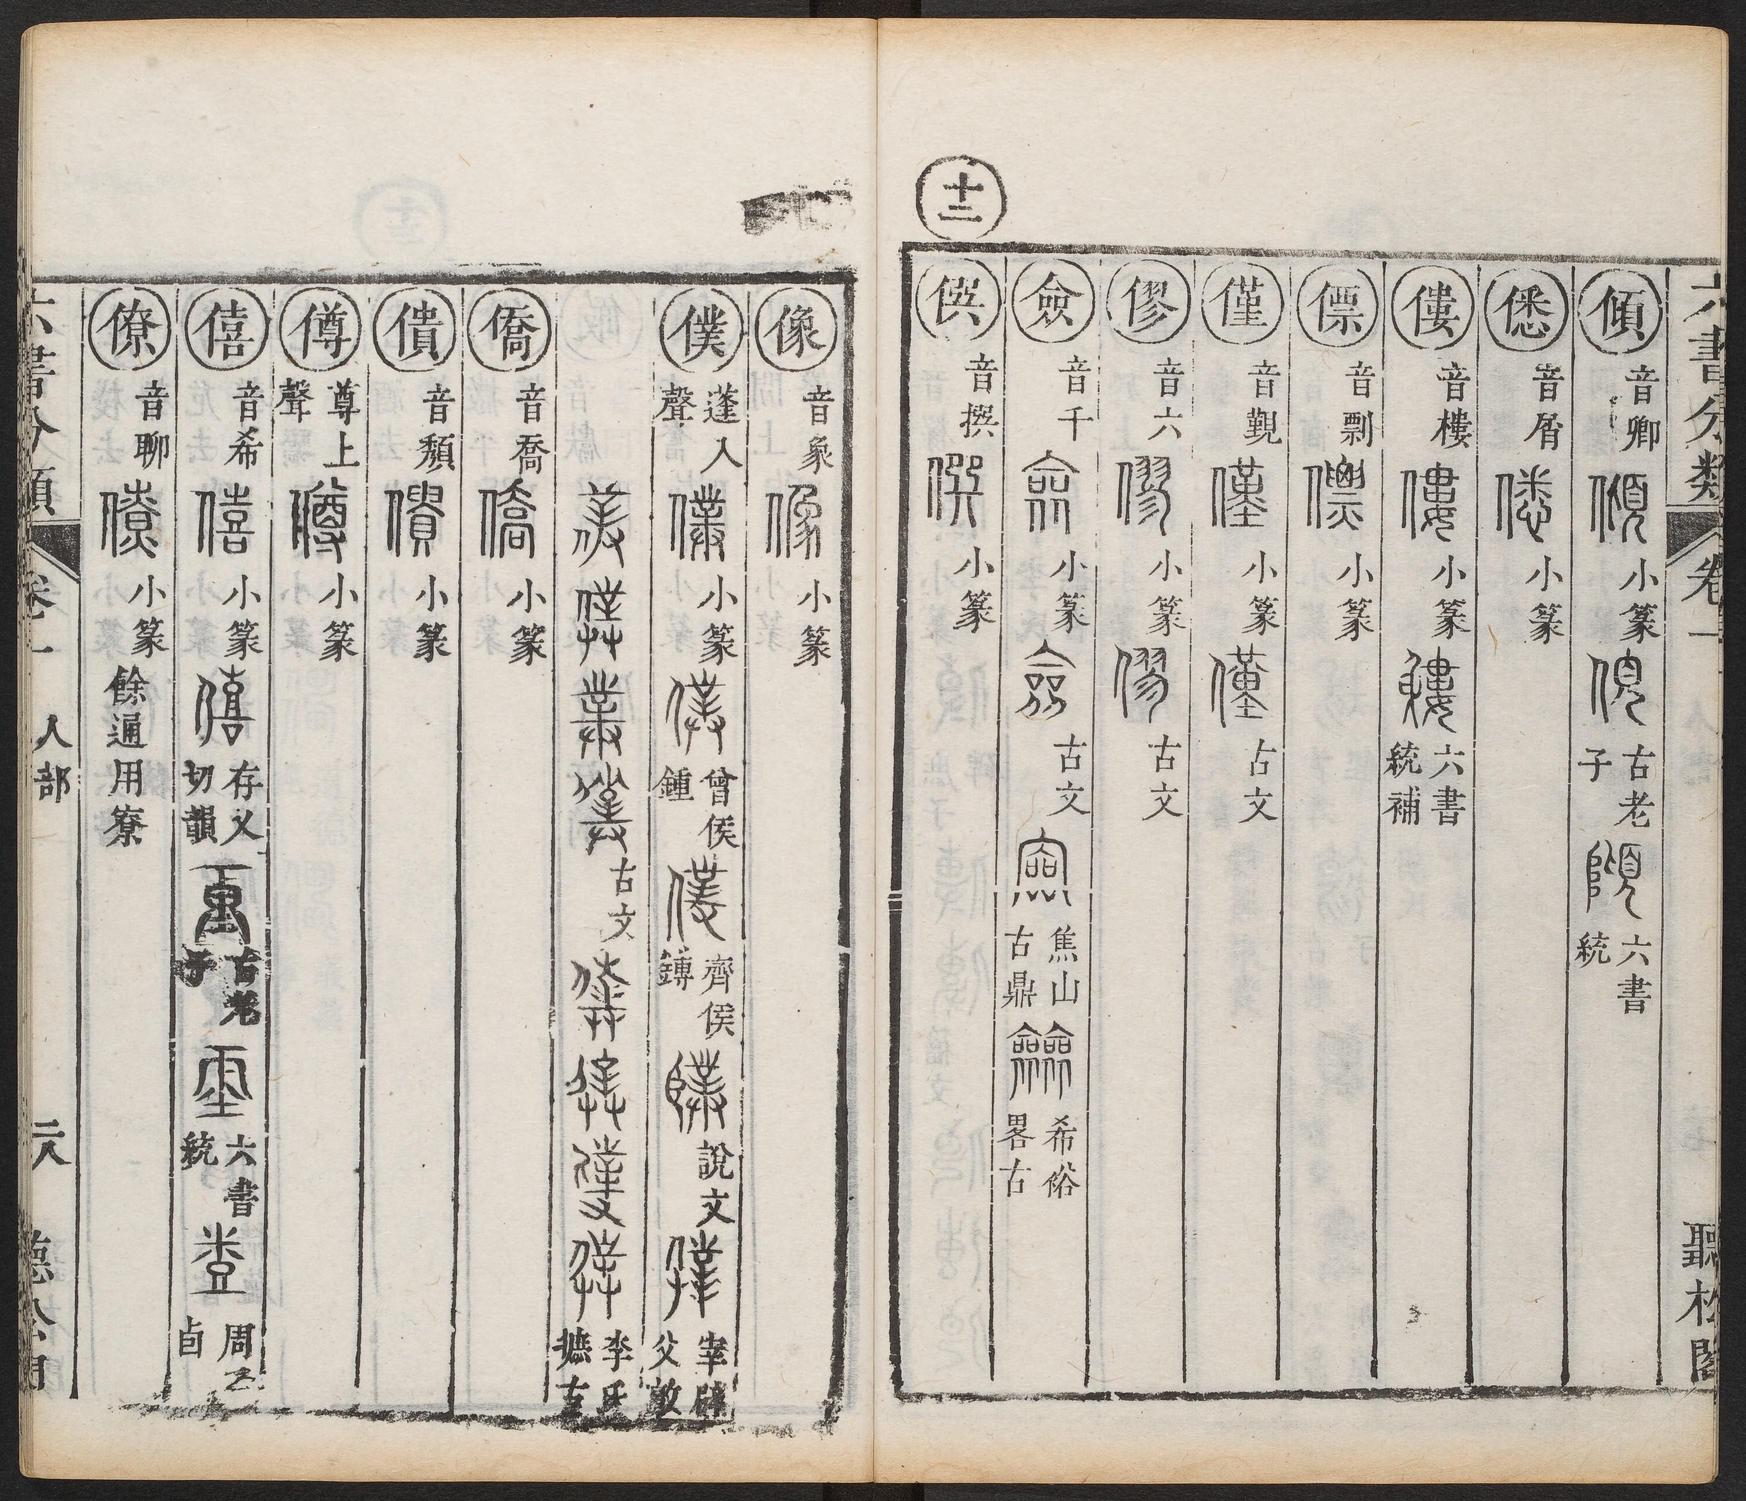 六書分類 卷一 聽松閣
傾 音卿 小篆 古老子 六書統
僁 音屑 小篆
僂 音樓 小篆 六書統補
僄 音剽 小篆
僅 音覲 小篆 古文
僇 音六 小篆 古文
僉 音千 小篆 古文 焦山古鼎 希裕畧古
僎 音撰 小篆
十二
像 音象 小篆
僕 蓬入聲 小篆 曾侯鍾 齊侯鎛 說文 宰辟父敦
古文 李氏摭古
僑 音喬 小篆
僓 音頽 小篆
僔 尊上聲 小篆
僖 音希 小篆 存乂切韻 古老子 六書統 周乙卣
僚 音聊 小篆 餘通用寮
六書分類 卷一 人部 二八 聽松閣